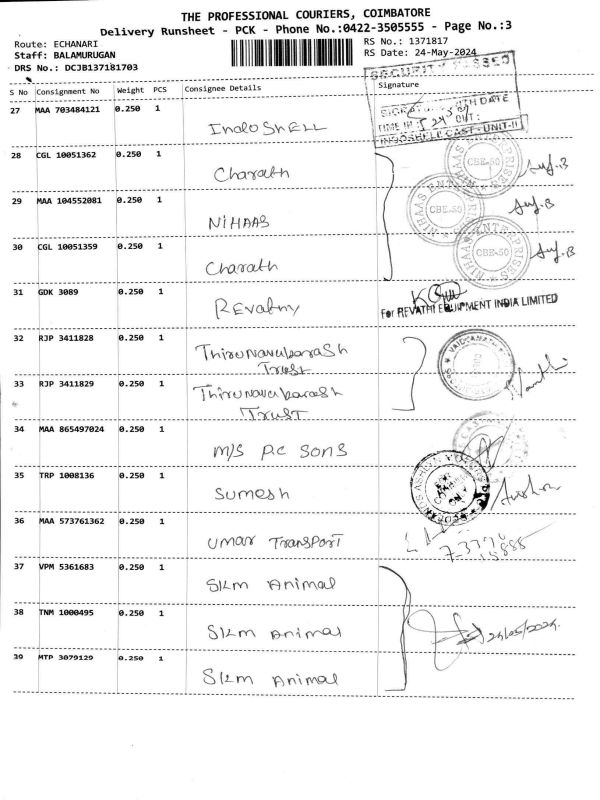 THE PROFESSIONAL COURIERS, COIMBATORE
Delivery Runsheet - PCK - Phone No.:0422-3505555 - Page No.:3
Route: ECHANARI
RS No.: 1371817
Staff: BALAMURUGAN
RS Date: 24-May-2024
DRS No.: DCJB137181703
S No Consignment No Weight PCS Consignee Details Signature
SECURITY PASSED
SIGNATURE WITH DATE
TIME IN: OUT:
INDOSHELL CAST - UNIT-II
27 MAA 703484121 0.250 1 Indo SHELL
28 CGL 10051362 0.250 1 Charath
NIHAAS ENTERPRISES CBE-50
29 MAA 104552081 0.250 1 NiHAAS
NIHAAS ENTERPRISES CBE-50
30 CGL 10051359 0.250 1 Charath
NIHAAS ENTERPRISES CBE-50
31 GDK 3089 0.250 1 Revathy
For REVATHI EQUIPMENT INDIA LIMITED
32 RJP 3411828 0.250 1 Thirunavukarash
Trust
33 RJP 3411829 0.250 1 Thirunavukarash
Trust
34 MAA 865497024 0.250 1 M/S P.C SONS
35 TRP 1008136 0.250 1 Sumesh
36 MAA 573761362 0.250 1 Umar Transport
37 VPM 5361683 0.250 1 Skm Animal
38 TNM 1000495 0.250 1 Skm Animal
24/05/2024
39 MTP 3079129 0.250 1 Skm Animal